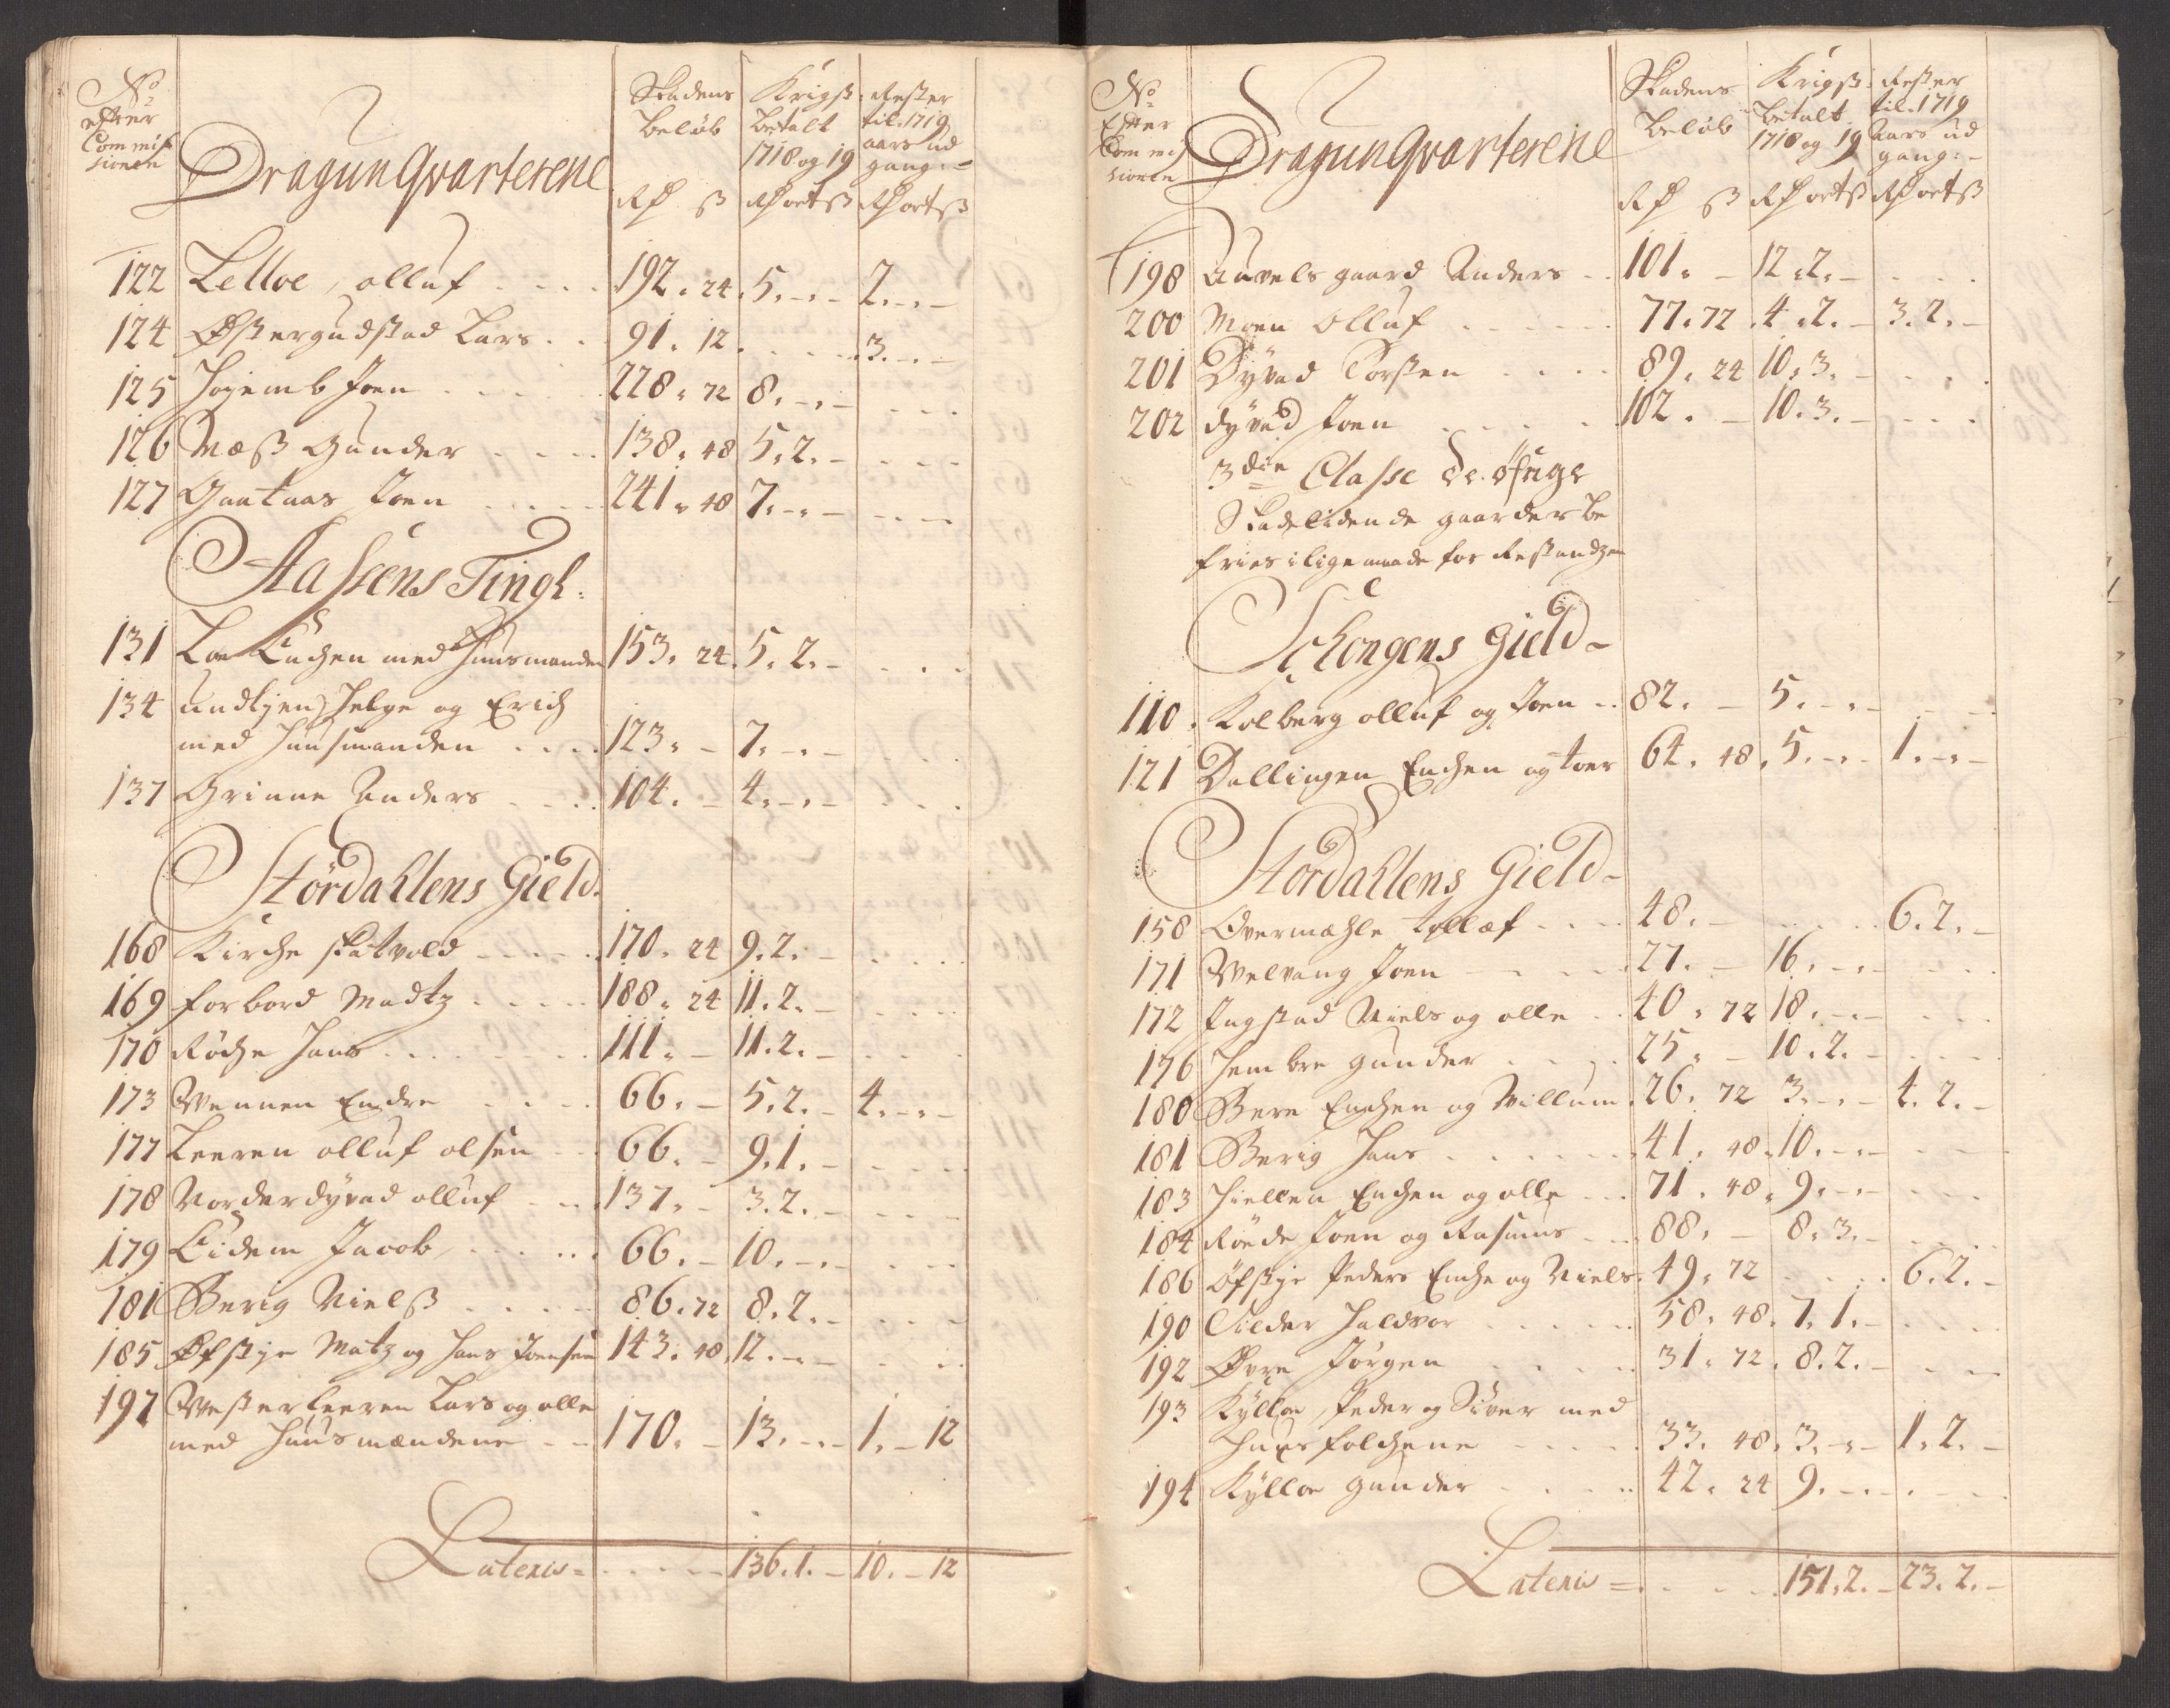 No
efter
Commis
sionen
DragunQvarterene
Skadens
beløb
Krigsß:
betalt
1718 og 19
Rester
til 1719
aars ud
gang:-
Rd ß
Rd ort ß
Rd ort ß
122 Lelloe, olluf 192. 24. 5. -. - 2. -. -
124 Østergudstad Lars 91. 12. 3. -. -
125 Hojemb Joen 228. 72 8. -. -
126 Mæß Gunder 138. 48 5. 2. -
127 Gaataas Joen 241. 48 7. -. -
Aassens Tingl:
131 Loe Enchen med Huusmanden 153. 24. 5. 2. -
134 undlien, Helge og Erich
med Huusmanden 123. - 7. -. -
137 Grinne Anders 104. - 4. -. -
Størdahlens Gield.
168 Kirche skatvold 170. 24 9. 2. -
169 forbord Madtz 188. 24 11. 2. -
170 Røche Hans 111. - 11. 2. -
173 Wennen Endre 66. - 5. 2. - 4. -. -
177 Leeren olluf olsen 66. - 9. 1. -
178 Norderdyvad olluf 137. - 3. 2. -
179 Eidem Jacob 66. - 10. -. -
181 Berig Nielß 86. 72 8. 2. -
185 Øfstje Matz og Hans Joensen 143. 48. 12. -. -
197 Westerleeren Lars og olle
med Huusmændene 170. - 13. -. - 1. - 12
Lateris = 136. 1. - 10. - 12
No
Efter
Commis
sionen
DragunQvarterene
Skadens
beløb
Krigsß:
betalt
1718 og 19
Rester
til 1719
Aars ud
gang:-
Rd ß
Rd ort ß
Rd ort ß
198 Auvelsgaard Anders 101. - 12. 2. -
200 Moen Olluf 77. 72. 4. 2. - 3. 2. -
201 Dyvad Torsten 89. 24 10. 3. -
202 dyvad Joen 102. - 10. 3. -
3die Classe de øfrige
Skadelidende gaarder be
fries i lige maade for Restandzen
Schongens Gield -
110. Kolberg olluf og Joen 82. - 5. -. -
121 Dallingen Enchen og toer 64. 48. 5. -. - 1. -. -
Stordahlens Gield -
158 Overmæhle tollæf 48. - 6. 2. -
171 Welvang Joen 27. - 16. -. -
172 Ingstad Niels og olle 40. 72 18. -. -
176 Hembre gunder 25. - 10. 2. -
180 Bere Enchen og Willum 26. 72 3. -. - 4. 2. -
181 Berig Hans 41. 48. 10. -. -
183 Hiellen Enchen og olle 71. 48. 9. -. -
184 Røede Joen og Rasmus 88. - 8. 3. -
186 Øfstje Peders Enche og Niels 49. 72 6. 2. -
190 Tilder Haldvor 58. 48. 7. 1. -
192 Øvre Jørgen 31. 72. 8. 2. -
193 Kylloe, Peder og Siver med
Huusfolchene 33. 48. 3. -. - 1. 2. -
194 Kylloe gunder 42. 24 9. -. -
Lateris = 151. 2. - 23. 2. -